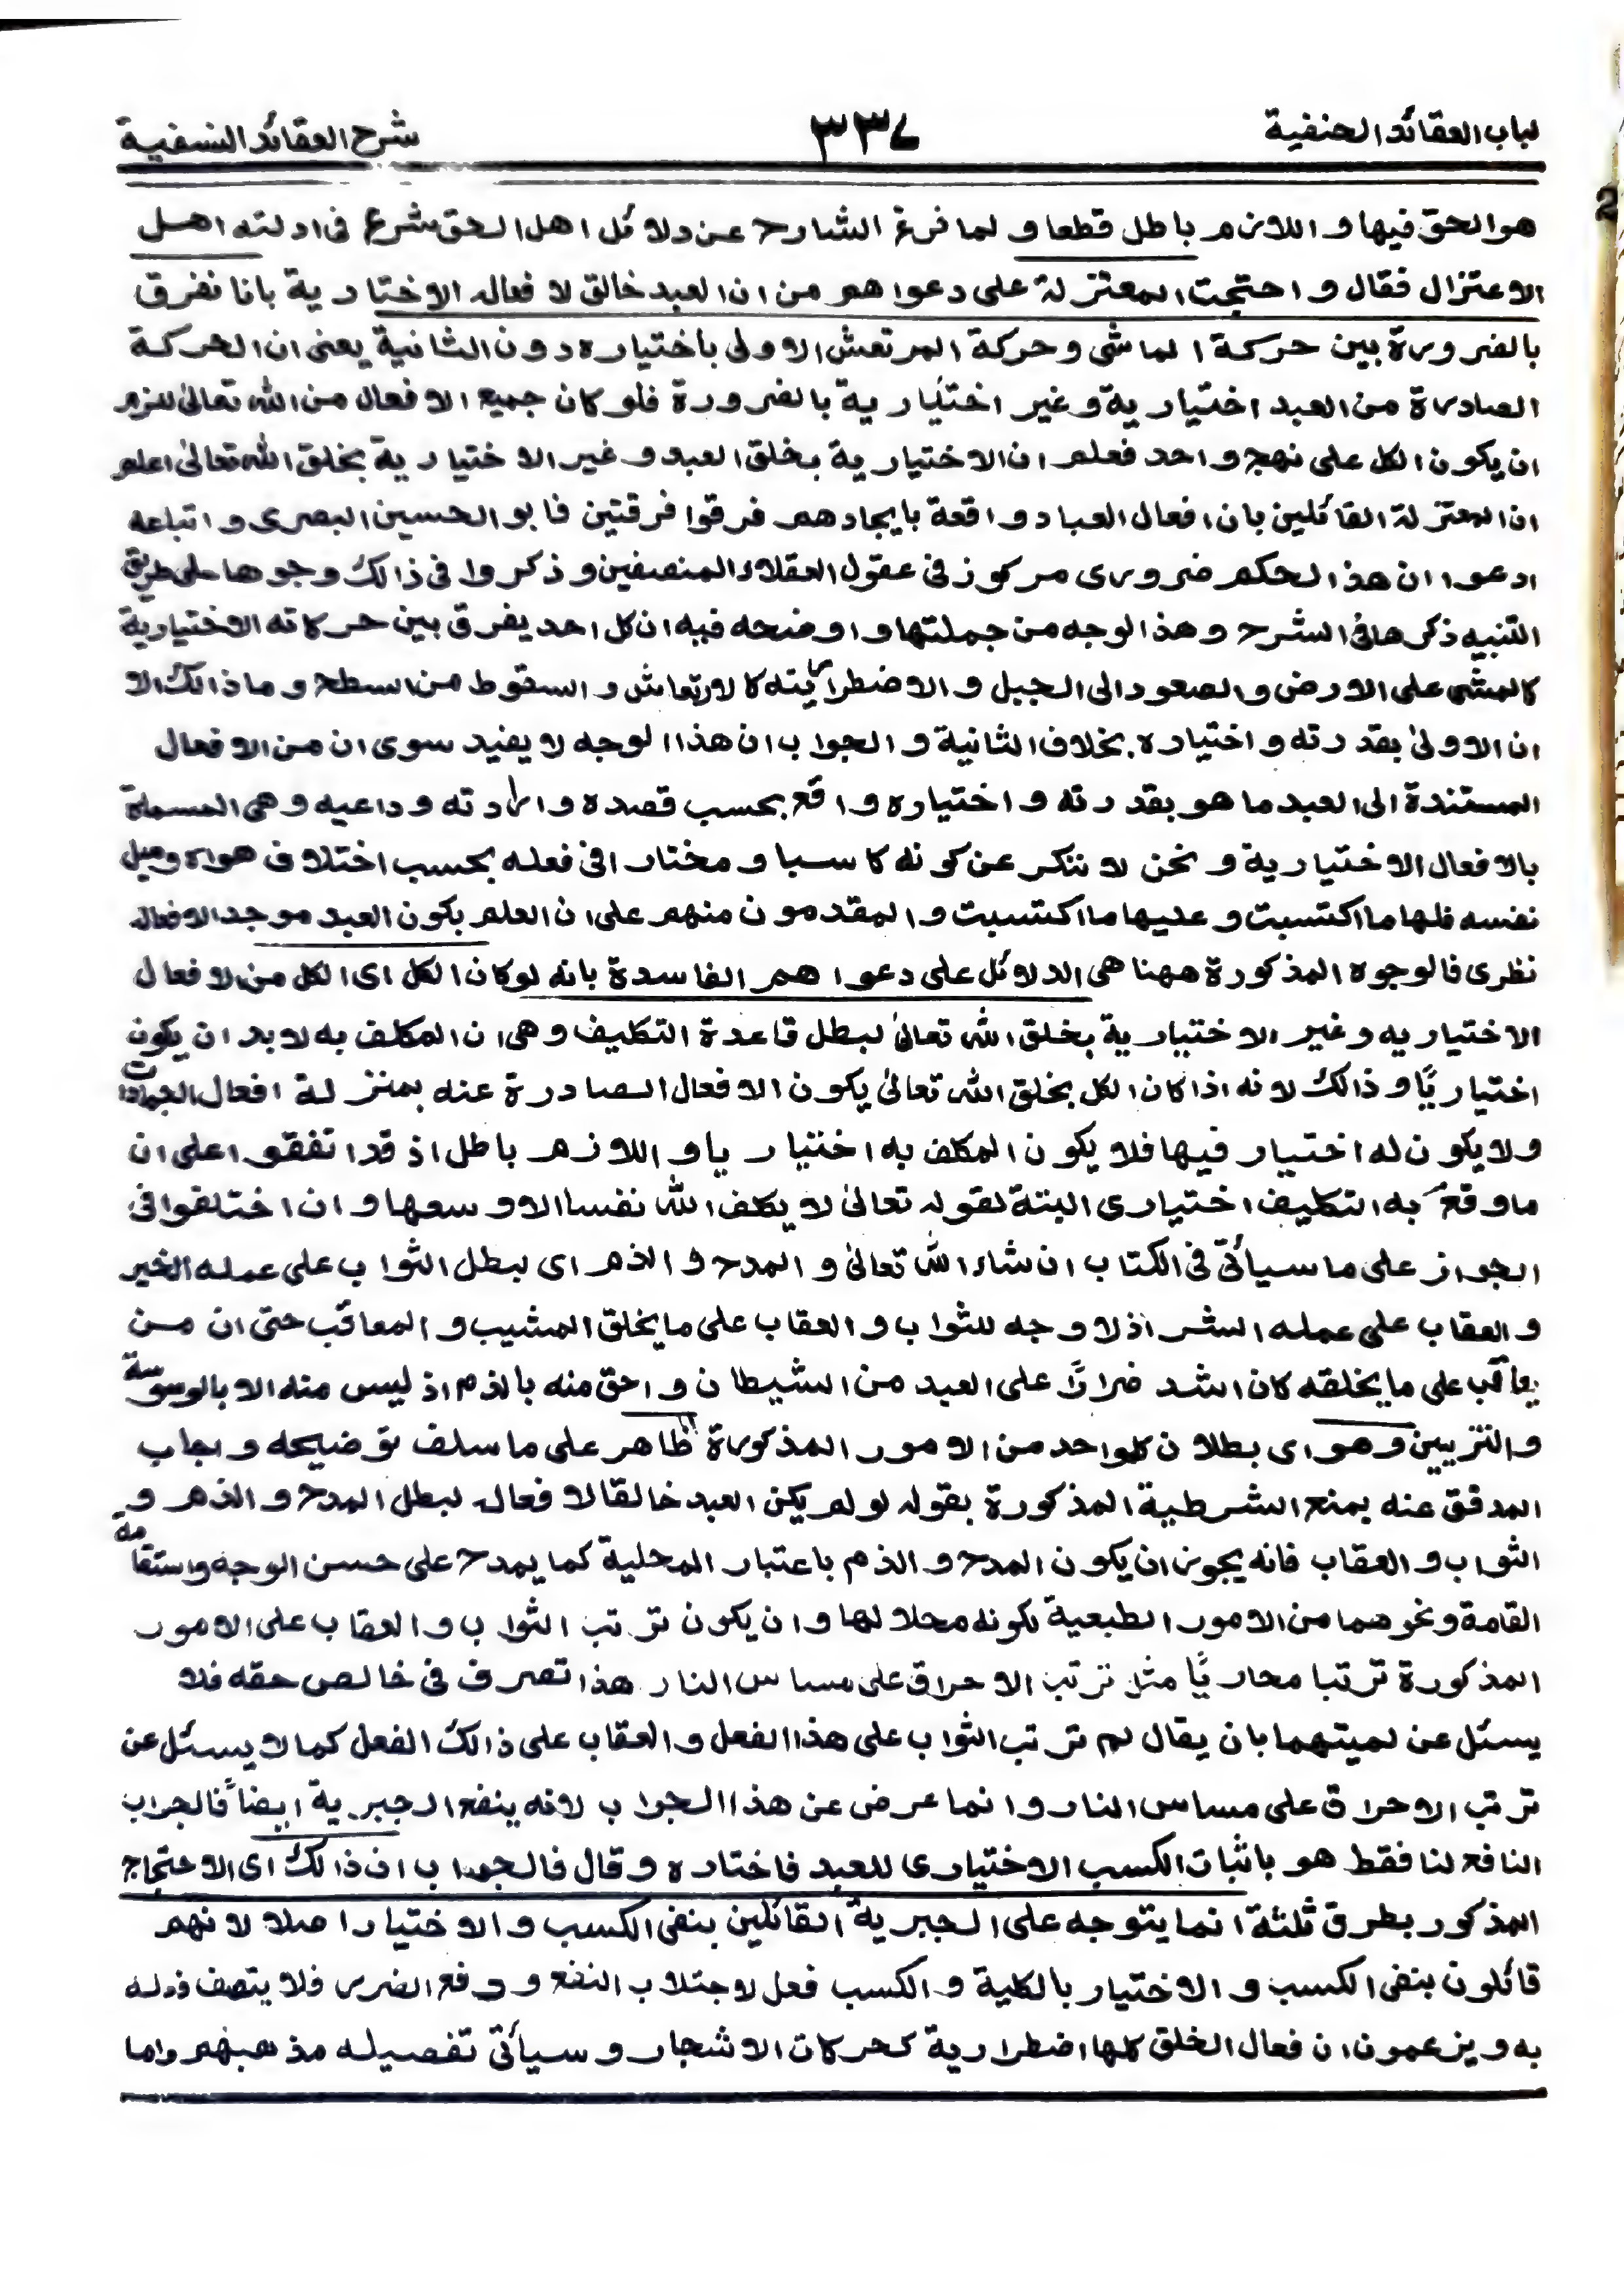 لباب العقائد الحنفية ٣٣٧ شرح العقائد النسفية
هو الحق فيها و اللازم باطل قطعا و لما فرغ الشارح عن دلائل اهل الحق شرع فى ادلته اهل
الاعتزال فقال و احتجت المعتزلة على دعواهم من ان العبد خالق لافعاله الاختيارية بانا نفرق
بالضرورة بين حركة الماشى و حركة المرتعش الاولى باختياره دون الثانية يعنى ان الحركة
الصادرة من العبد اختيارية و غير اختيارية بالضرورة فلو كان جميع الافعال من الله تعالىٰ للزم
ان يكون الكل على نهج واحد فعلم ان الاختيارية بخلق العبد و غير الاختيارية بخلق الله تعالىٰ اعلم
ان المعتزلة القائلين بان افعال العباد واقعة بايجادهم فرقوا فرقتين فابو الحسين البصرى و اتباعه
ادعوا ان هذا الحكم ضرورى مركوز فى عقول العقلاء المنصفين و ذكروا فى ذالك وجوها على طريق
التنبيه ذكرها فى الشرح و هذا الوجه من جملتها و اوضحه فيه ان كل احد يفرق بين حركاته الاختيارية
كالمشى على الارض و الصعود الى الجبل و الاضطرارية كالارتعاش و السقوط من السطح و ما ذالك الا
ان الاولىٰ بقدرته و اختياره بخلاف الثانية و الجواب ان هذا الوجه لا يفيد سوى ان من الافعال
المستندة الى العبد ما هو بقدرته و اختياره واقع بحسب قصده و ارادته و داعيه و هى المسماة
بالافعال الاختيارية و نحن لا ننكر عن كونه كاسبا و مختارا فى فعله بحسب اختلاف هواه و ميل
نفسه فلها ما اكتسبت و عليها ما اكتسبت و المقدمون منهم على ان العلم بكون العبد موجد الافعاله
نظرى فالوجوه المذكورة ههنا هى الدلائل على دعواهم الفاسدة بانه لو كان الكل اى الكل من الافعال
الاختياريه و غير الاختيارية بخلق الله تعالىٰ لبطل قاعدة التكليف و هى ان المكلف به لابد ان يكون
اختياريًا و ذالك لانه اذا كان الكل بخلق الله تعالىٰ يكون الافعال الصادرة عنه بمنزلة افعال الجمادات
و لا يكون له اختيار فيها فلا يكون المكلف به اختياريا و اللازم باطل اذ قد اتفقوا على ان
ما وقع به التكليف اختيارى البتة لقوله تعالىٰ لا يكلف الله نفسا الا وسعها و ان اختلفوا فى
الجواز على ما سيأتى فى الكتاب ان شاء الله تعالىٰ و المدح و الذم اى لبطل الثواب على عمله الخير
و العقاب على عمله الشر اذ لا وجه للثواب و العقاب على ما يخلق المشيب و المعاقب حتى ان من
يعاقب على ما يخلقه كان اشد ضرارًا على العبد من الشيطان و احق منه بالذم اذ ليس منه الا بالوسوسة
و التزيين و هو اى بطلان كلواحد من الامور المذكورة ظاهر على ما سلف توضيحه و اجاب
المدقق عنه بمنع الشرطية المذكورة بقوله لو لم يكن العبد خالقا لافعاله لبطل المدح و الذم و
الثواب و العقاب فانه يجوز ان يكون المدح و الذم باعتبار المحلية كما يمدح على حسن الوجه و استقامة
القامة و نحوهما من الامور الطبعية لكونه محلا لها و ان يكون ترتب الثواب و العقاب على الامور
المذكورة ترتبا محاريًا مثل ترتب الاحراق على مساس النار هذا تصرف فى خالص حقه فلا
يسئل عن لميتهما بان يقال لم ترتب الثواب على هذا الفعل و العقاب على ذالك الفعل كما لا يسئل عن
ترتب الاحراق على مساس النار و انما عرض عن هذا الجواب لانه ينفع الجبرية ايضاً فالجواب
النافع لنا فقط هو باثبات الكسب الاختيارى للعبد فاختاره و قال فالجواب ان ذالك اى الاحتجاج
المذكور بطرق ثلثة انما يتوجه على الجبرية القائلين بنفى الكسب و الاختيار اصلا لانهم
قائلون بنفى الكسب و الاختيار بالكلية و الكسب فعل لاجتلاب النفع و دفع الضرر فلا يتصف
به و يزعمون ان فعال الخلق كلها اضطرارية كحركات الاشجار و سيأتى تفصيله مذهبهم و اما